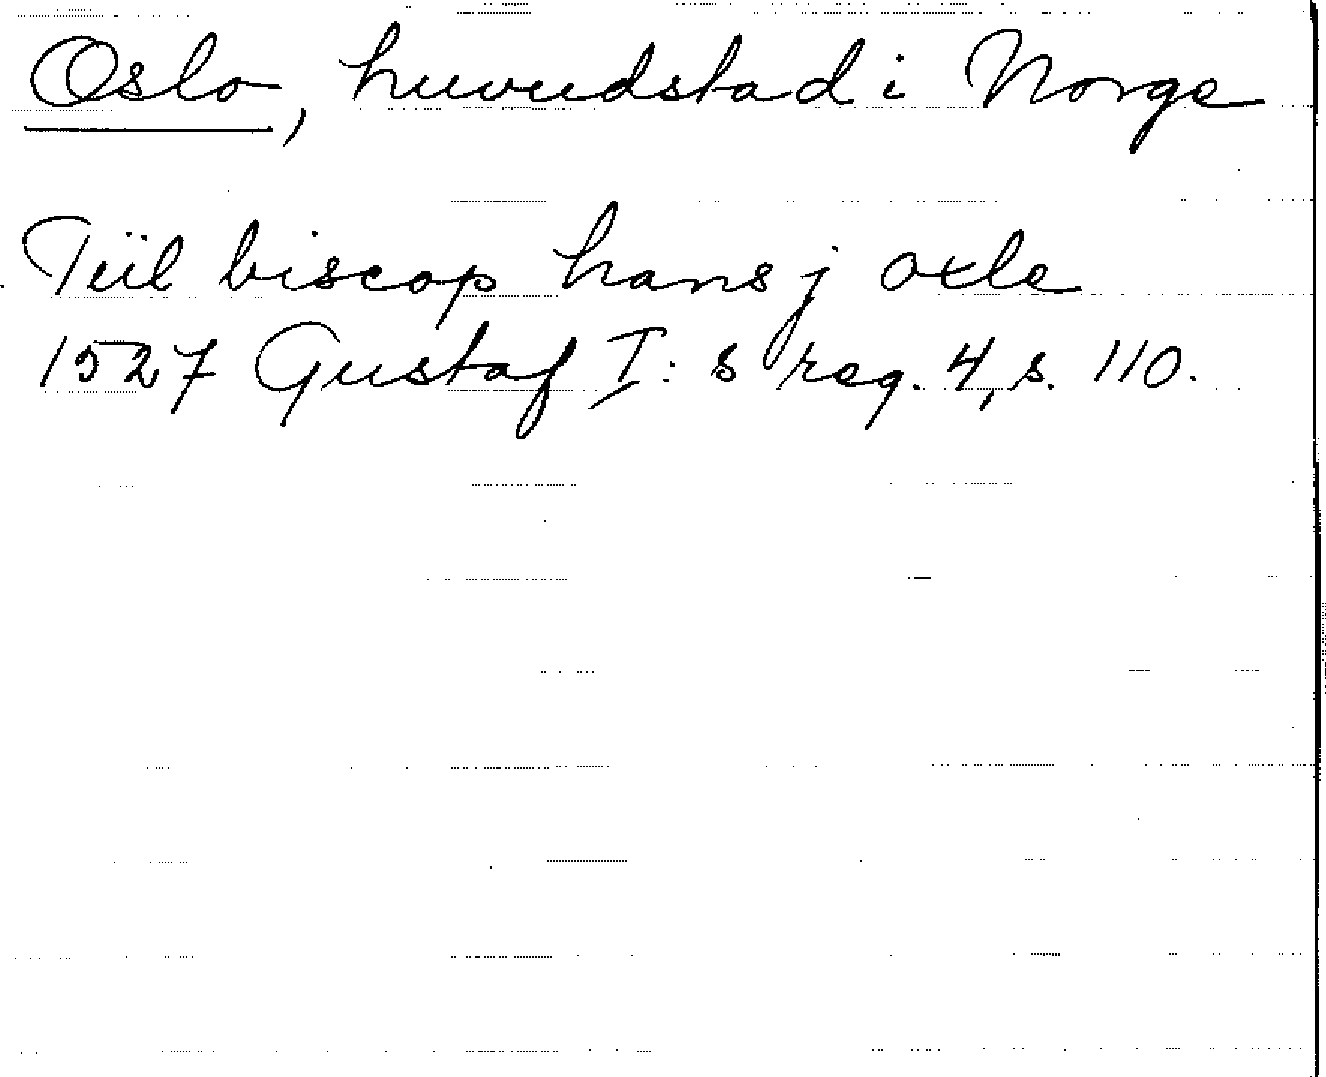 Oslo, huvudstad i Norge
Tiil biscop hans j oxle
1527 Gustaf I:s reg. 4, s. 110.